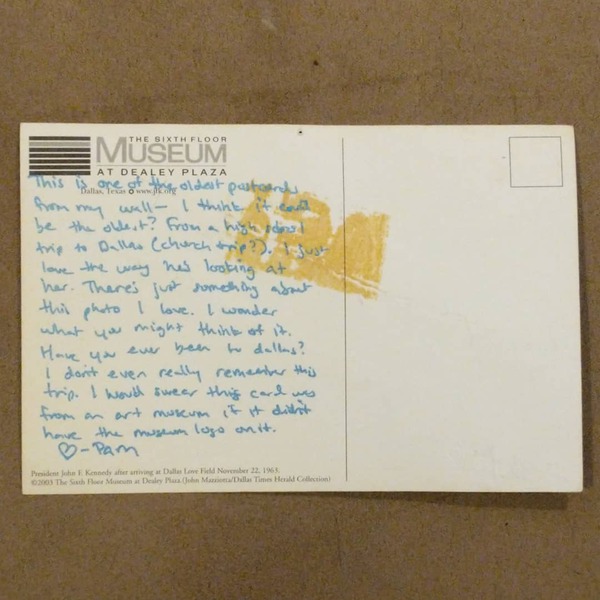 THE SIXTH FLOOR
MUSEUM
AT DEALEY PLAZA
Dallas, Texas www.jfk.org
This is one of the oldest postcards
from my wall — I think it could
be the oldest? From a high school
trip to Dallas (church trip?). I just
love the way he's looking at
her. There's just something about
this photo I love. I wonder
what you might think of it.
Have you ever been to dallas?
I don't even really remember this
trip. I would swear this card was
from an art museum if it didn't
have the museum logo on it.
♡ - Pam
President John F. Kennedy after arriving at Dallas Love Field November 22, 1963.
©2003 The Sixth Floor Museum at Dealey Plaza (John Mazziotta/Dallas Times Herald Collection)